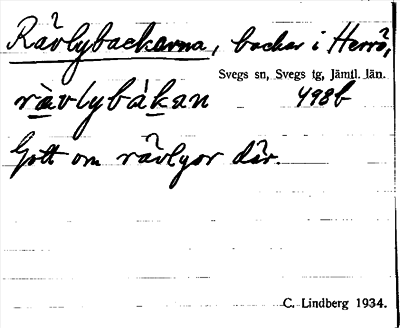 Rävlybackarna, backar i Herrö,
Svegs sn, Svegs tg, Jämtl. län.
rävlybákan 498b
Gott om rävlyor där.
C. Lindberg 1934.